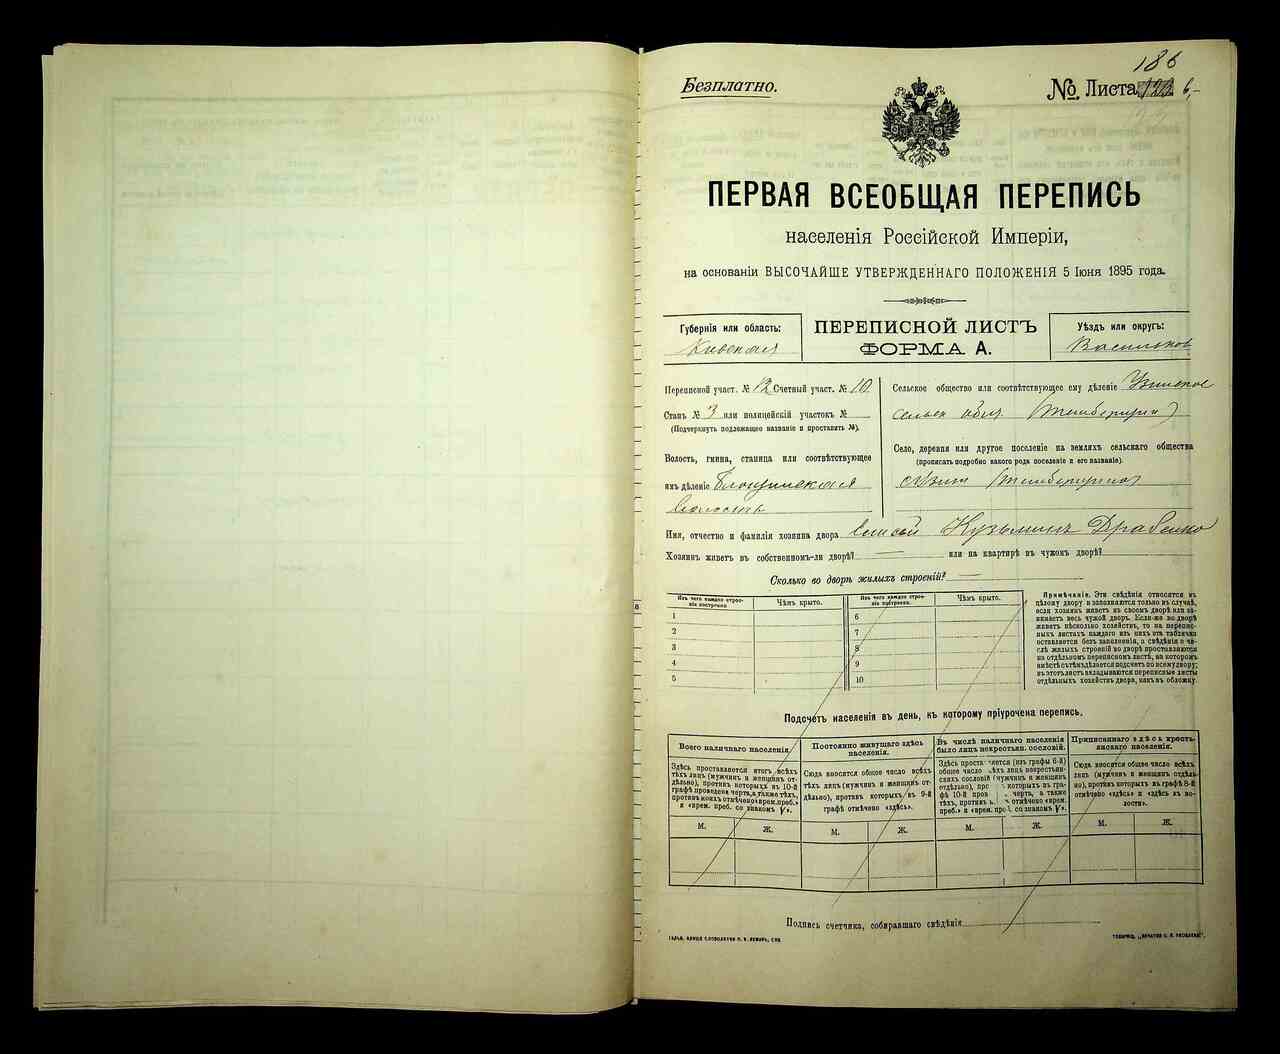 186
Безплатно.
№ Листа 6,-
ПЕРВАЯ ВСЕОБЩАЯ ПЕРЕПИСЬ
населенія Россійской Имперіи,
на основаніи ВЫСОЧАЙШЕ УТВЕРЖДЕННАГО ПОЛОЖЕНІЯ 5 Іюня 1895 года.
Губернія или область:
Киевская
ПЕРЕПИСНОЙ ЛИСТЪ
ФОРМА А.
Уѣздъ или округъ:
Васильков
Переписной участ. № 12 Счетный участ. № 10.
Станъ № 3 или полицейскій участокъ №
(Подчеркнуть подлежащее названіе и проставить №).
Волость, гмина, станица или соотвѣтствующее
имъ дѣленіе
волость
Сельское общество или соотвѣтствующее ему дѣленіе
сельск общ.
Село, деревня или другое поселеніе на земляхъ сельскаго общества
(прописать подробно какого рода поселеніе и его названіе).
Имя, отчество и фамилія хозяина двора Кузьминъ Драбенко
Хозяинъ живетъ въ собственномъ-ли дворѣ? — или на квартирѣ въ чужомъ дворѣ?
Сколько во дворѣ жилыхъ строеній? —
Изъ чего каждое строе-
ніе построено.
Чѣмъ крыто.
1
2
3
4
5
Изъ чего каждое строе-
ніе построено.
Чѣмъ крыто.
6
7
8
9
10
Примѣчаніе. Эти свѣдѣнія относятся къ
цѣлому двору и заполняются только въ случаѣ,
если хозяинъ живетъ въ своемъ дворѣ или за-
нимаетъ весь чужой дворъ. Если-же во дворѣ
живетъ нѣсколько хозяйствъ, то на перепис-
ныхъ листахъ каждаго изъ нихъ эта табличка
оставляется безъ заполненія, а свѣдѣнія о чи-
слѣ жилыхъ строеній во дворѣ проставляются
на отдѣльномъ переписномъ листѣ, на которомъ
вмѣстѣ съ тѣмъ дѣлается подсчетъ по всему двору;
въ этотъ листъ вкладываются переписные листы
отдѣльныхъ хозяйствъ двора, какъ въ обложку.
Подсчетъ населенія въ день, къ которому пріурочена перепись.
Всего наличнаго населенія.
Здѣсь проставляются итогъ всѣхъ
тѣхъ лицъ (мужчинъ и женщинъ от-
дѣльно), противъ которыхъ въ 10-й
графѣ проведена черта, а также тѣхъ,
противъ коихъ отмѣчено «врем. преб.»
и «врем. преб. со знакомъ V».
М.
Ж.
Постоянно живущаго здѣсь
населенія.
Сюда вносится общее число всѣхъ
тѣхъ лицъ (мужчинъ и женщинъ от-
дѣльно), противъ которыхъ въ 9-й
графѣ отмѣчено «здѣсь».
М.
Ж.
Въ числѣ наличнаго населенія
было лицъ некрестьян. сословій.
Здѣсь проста ется (изъ графы 6-й)
общее число ѣхъ лицъ некрестьян-
скихъ сословій (мужчинъ и женщинъ
отдѣльно), про которыхъ въ гра-
фѣ 10-й пров черта, а также
тѣхъ, противъ отмѣчено «врем.
преб.» и «врем. пре со знакомъ V».
М.
Ж.
Приписаннаго здѣсь кресть-
янскаго населенія.
Сюда вносится общее число всѣхъ
лицъ (мужчинъ и женщинъ отдѣль-
но), противъ которыхъ въ графѣ 8-й
отмѣчено «здѣсь» и «здѣсь въ во-
лости».
М.
Ж.
Подпись счетчика, собиравшаго свѣдѣнія